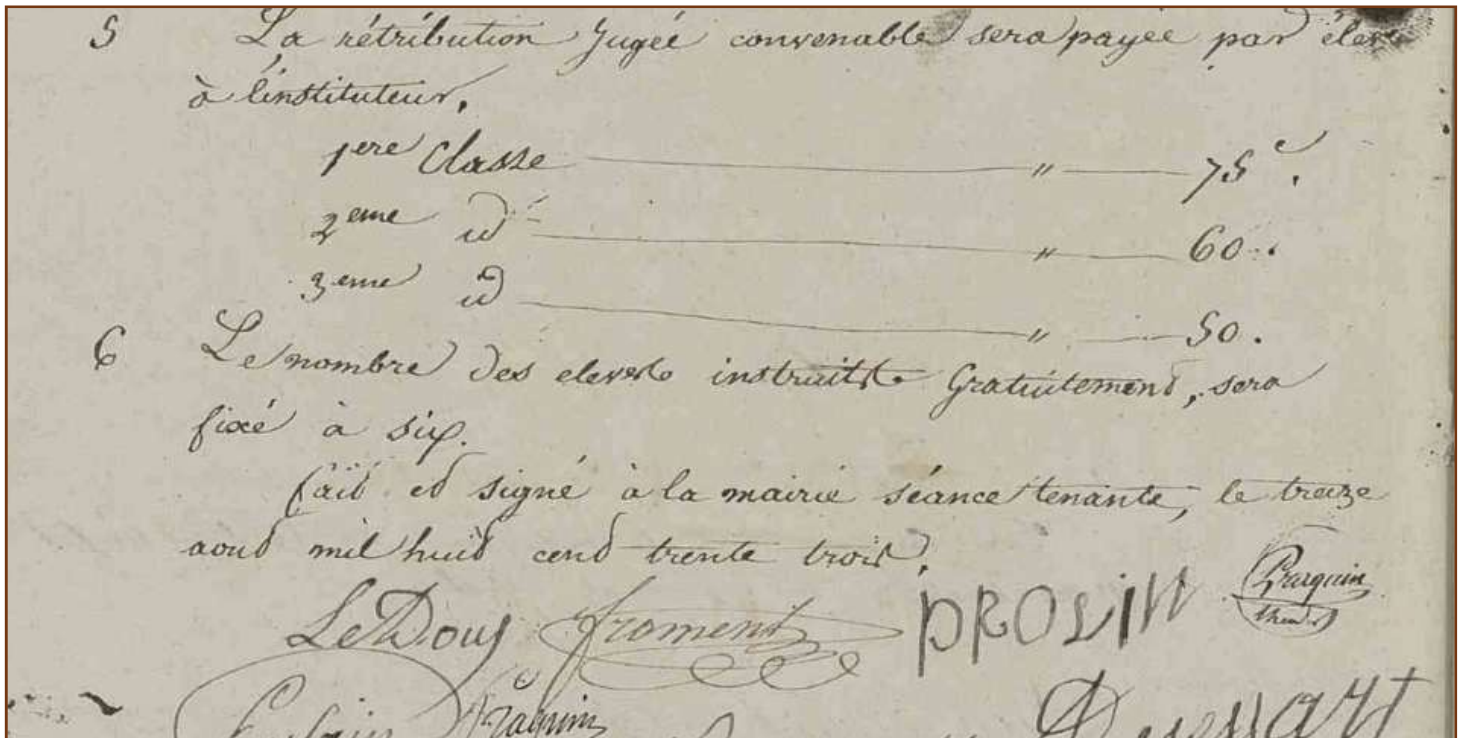 5 La rétribution Jugée convenable sera payée par élev
à l'instituteur.
1ere Classe ——— " ——— 75 c.
2eme id ——— " ——— 60.
3eme id ——— " ——— 50.
6 Le nombre des eleves instruits Gratuitement, sera
fixé à six.
fait et signé à la mairie séance tenante, le treize
aout mil huit cent trente trois.
LeDoux froment PROLIN Parquin